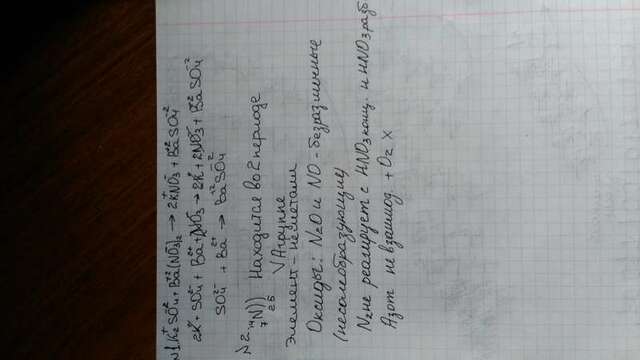 N1. K₂⁺SO₄²⁻ + Ba⁺²(NO₃⁻)₂ → 2KNO₃ + Ba⁺²SO₄⁻²
2K⁺ + SO₄²⁻ + Ba²⁺ + 2NO₃⁻ → 2K⁺ + 2NO₃⁻ + Ba⁺²SO₄⁻²
SO₄²⁻ + Ba²⁺ → Ba⁺²SO₄⁻²
N2. ₇¹⁴N)) Находится во 2 периоде
2 5 V A группе
Элемент - неметалл
Оксиды: N₂O и NO - безразличные
(несолеобразующие)
N₂ не реагирует с HNO₃ конц. и HNO₃ разб
Азот не взаимод. + O₂ x